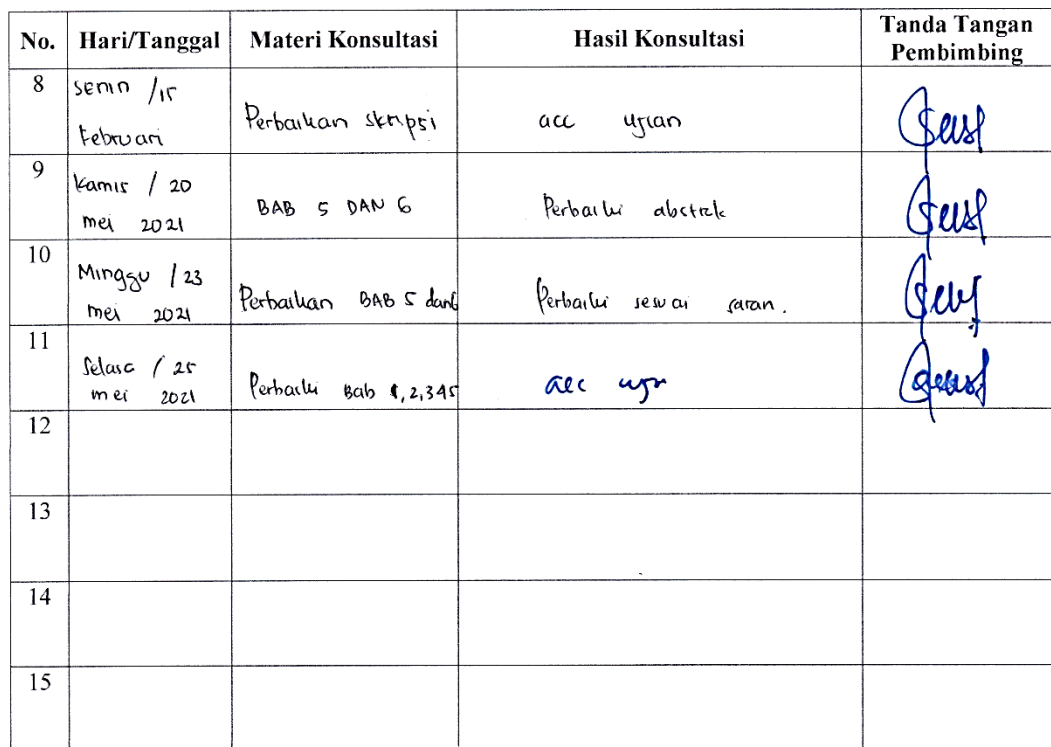 No. Hari/Tanggal Materi Konsultasi Hasil Konsultasi Tanda Tangan Pembimbing
8 Senin /15 Februari Perbaikan skripsi acc ujian
9 Kamis / 20 mei 2021 BAB 5 DAN 6 Perbaiki abstrak
10 Minggu / 23 mei 2021 Perbaikan BAB 5 dan 6 Perbaiki sesuai saran.
11 Selasa / 25 mei 2021 Perbaiki Bab 1,2,345 acc
12
13
14
15